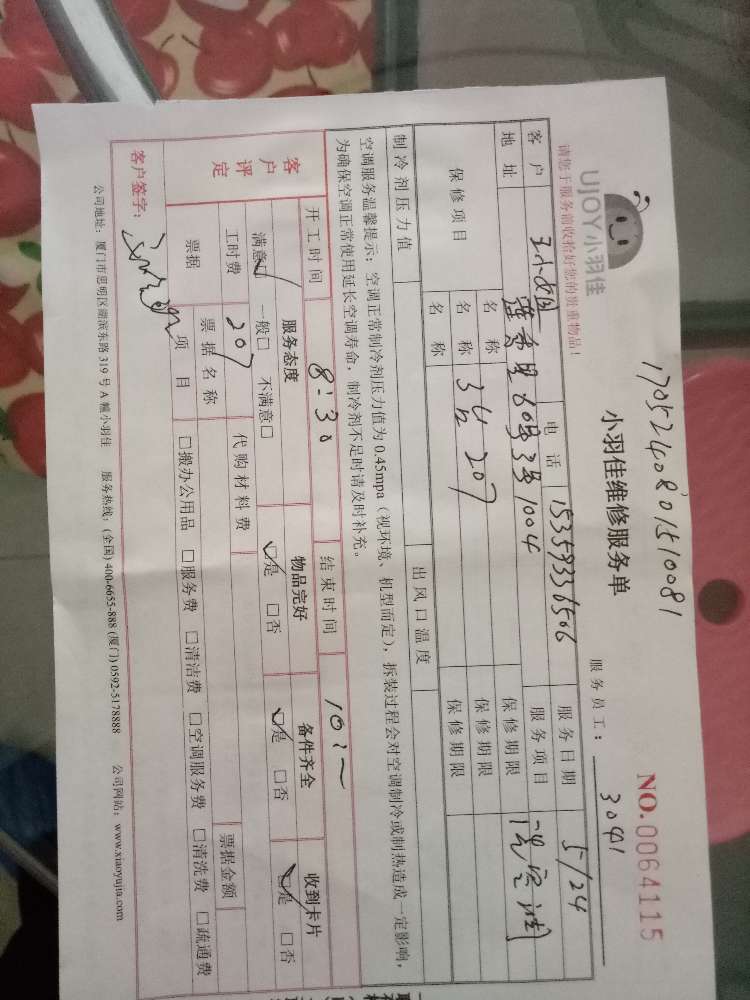 170524080151 0081
UJOY小羽佳
小羽佳维修服务单
NO.0064115
请您于服务前收拾好您的贵重物品!
服务员工: 3041
客户 王小姐 电话 15359336506 服务日期 5/24
地址 莲秀里60号3号1004 服务项目
保修项目 名称 保修期限
名称 3台 207 保修期限
名称 保修期限
制冷剂压力值 出风口温度
空调服务温馨提示:空调正常制冷剂压力值为0.45mpa(视环境、机型而定),拆装过程会对空调制冷或制热造成一定影响,
为确保空调正常使用延长空调寿命,制冷剂不足时请及时补充。
开工时间 8:30 结束时间 10:~
客户评定 服务态度 物品完好 备件齐全 收到卡片
满意☑ 一般□ 不满意□ ☑是 □否 ☑是 □否 ☑是 □否
工时费 207 代购材料费
票据 票据名称 票据金额
项目 □搬办公用品 □服务费 □清洁费 □空调服务费 □清洗费 □疏通费
客户签字:
公司地址:厦门市思明区湖滨东路319号A幢小羽佳 服务热线:(全国) 400-6655-888 (厦门) 0592-5178888 公司网站:www.xiaoyujia.com